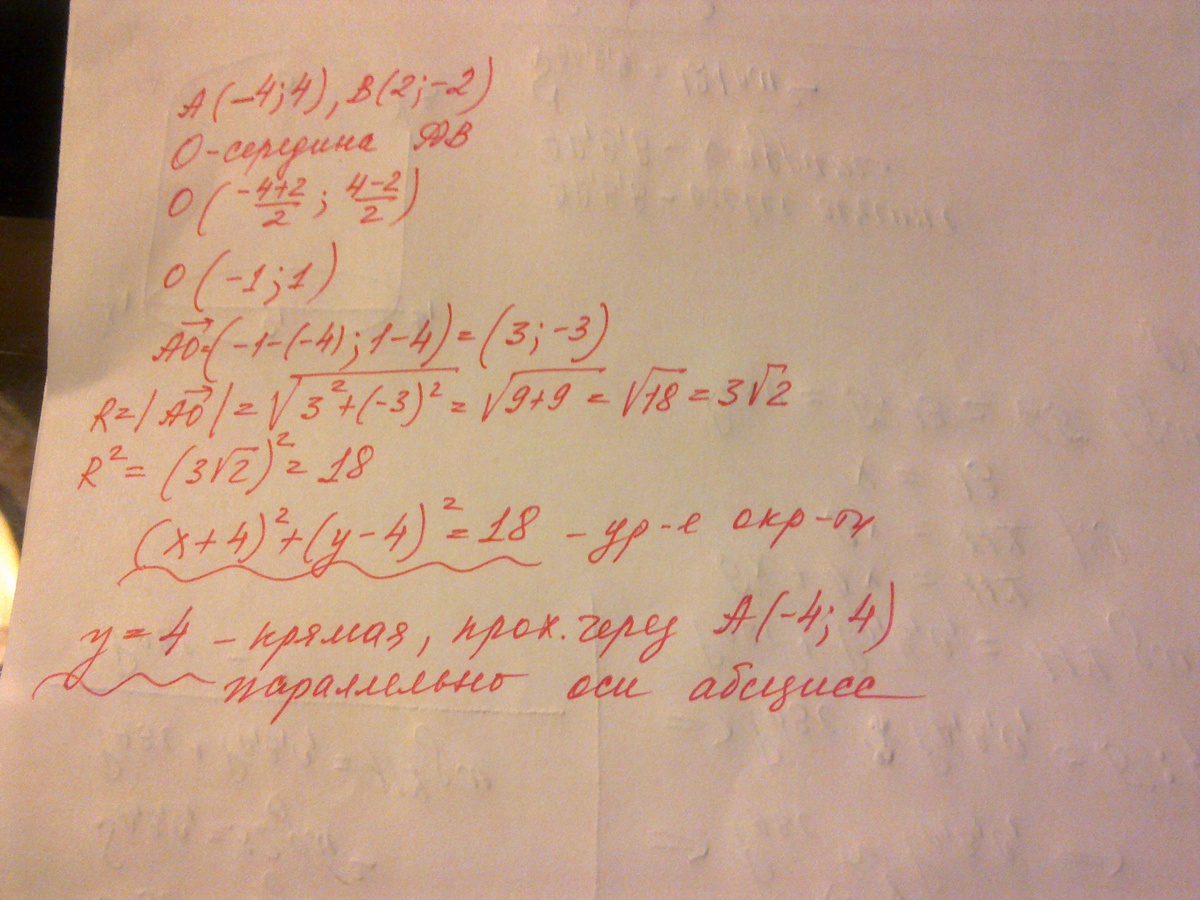 A(-4;4), B(2;-2)
O-середина AB
O(\frac{-4+2}{2}; \frac{4-2}{2})
O(-1;1)
\vec{AO}=(-1-(-4);1-4)=(3;-3)
R=|\vec{AO}|=√(3²+(-3)²)=√(9+9)=√18=3√2
R²=(3√2)²=18
(x+4)²+(y-4)²=18 - ур-е окр-ти
y=4 - прямая, прох. через A(-4;4)
параллельно оси абсцисс